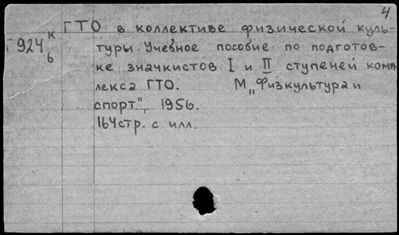 4
к ГТО в коллективе физической куль-
Г924 туры. Учебное пособие по подготов-
6 ке значкистов I и II ступеней комп-
лекса ГТО. М„Физкультура и
спорт", 1956.
164стр. с илл.